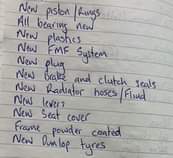 New piston/Rings
All bearing new
New plastics
New FMF System
New plug
New Brake and clutch seals
New Radiator hoses/Fluid
New levers
New Seat cover
Frame powder coated
New Dunlop tyres